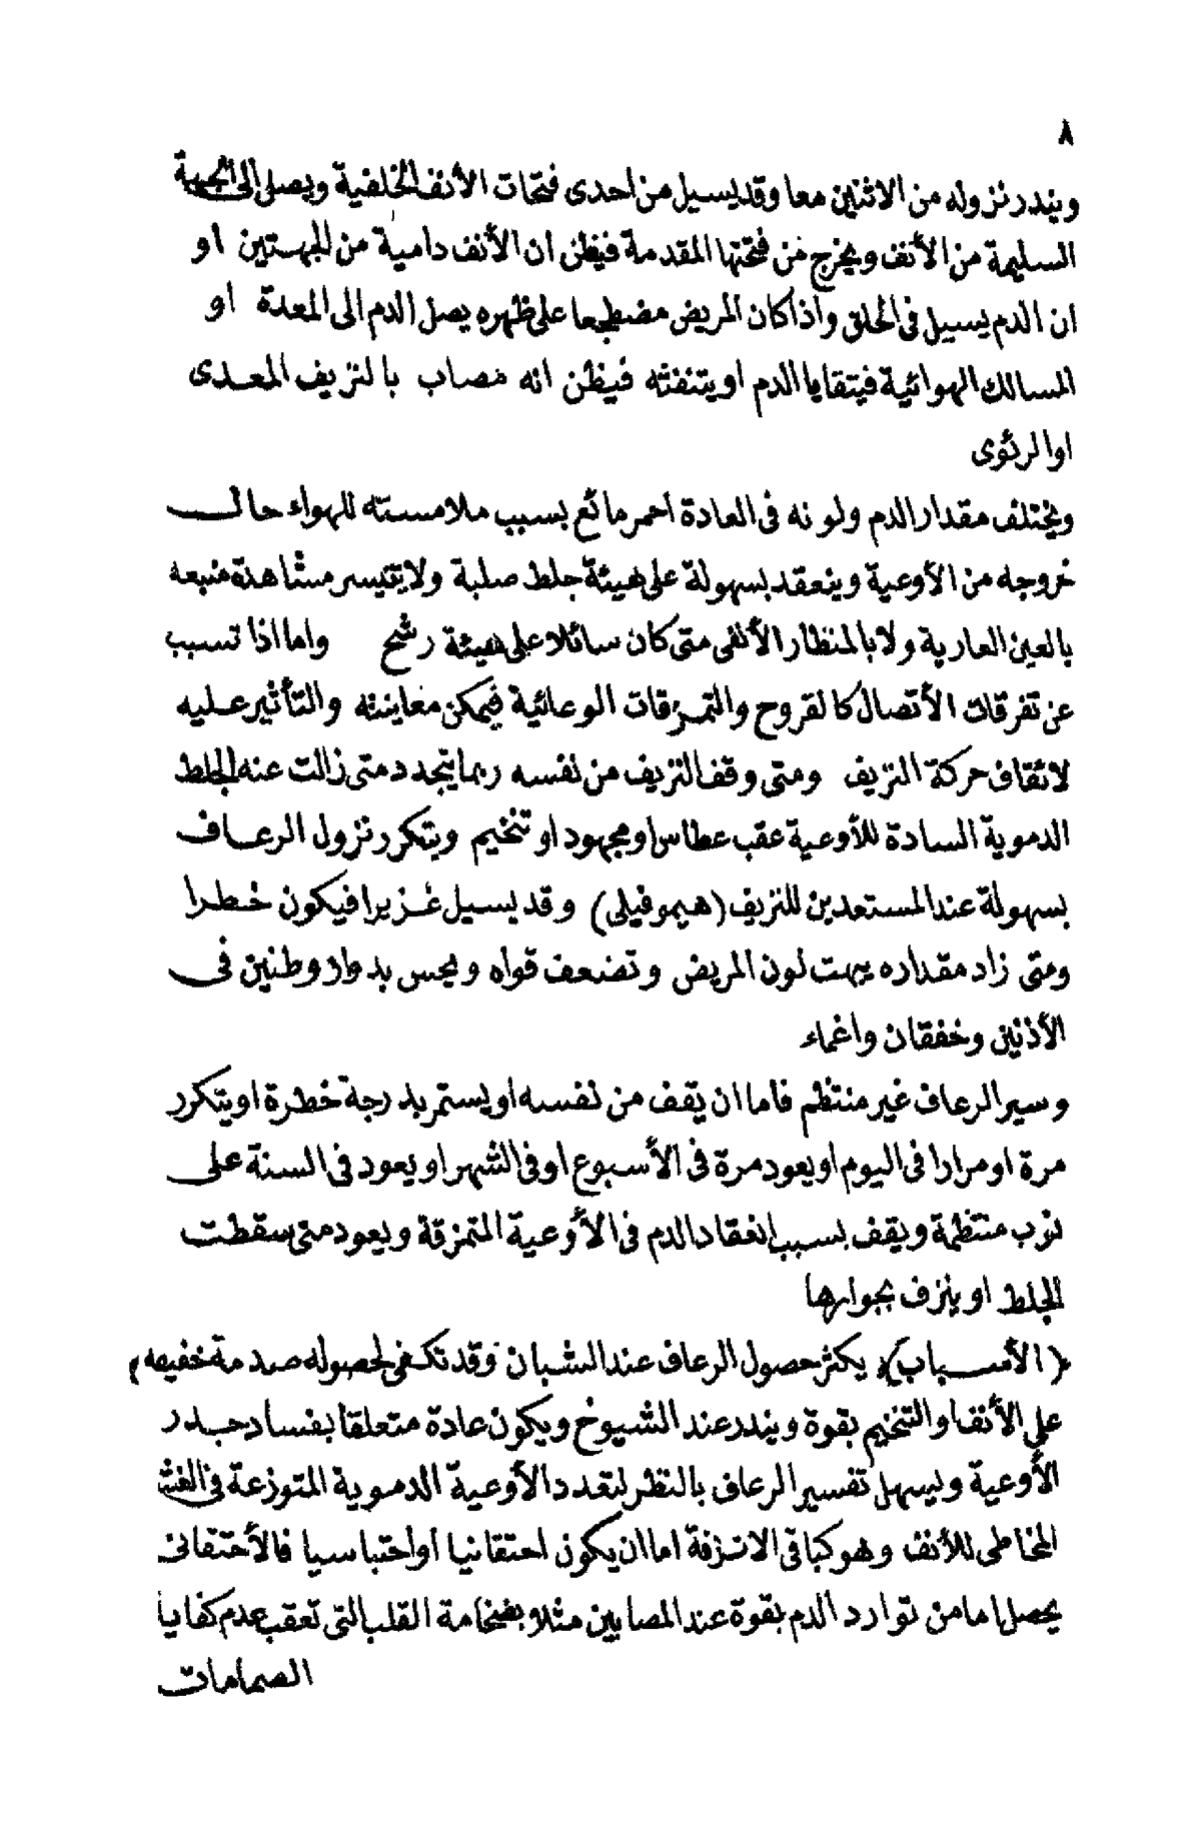 ٨
ويندر نزوله من الاثنين معا وقد يسيل من احدى فتحات الأنف الخلفية ويصل الى الجهة
السليمة من الأنف ويخرج من فتحتها المقدمة فيظن ان الأنف دامية من الجهتين او
ان الدم يسيل فى الحلق واذا كان المريض مضطجعا على ظهره يصل الدم الى المعدة او
المسالك الهوائية فيتقايا الدم او يتنفثه فيظن انه مصاب بالنزيف المعدى
او الرئوى
ويختلف مقدار الدم ولونه فى العادة احمر مائع بسبب ملامسته للهواء حال
خروجه من الأوعية وينعقد بسهولة على هيئة جلط صلبة ولا يتيسر مشاهدة منبعه
بالعين العارية ولا بالمنظار الأنفى متى كان سائلا على هيئة رشح واما اذا تسبب
عن تفرقات الأتصال كالقروح والتمزقات الوعائية فيمكن معاينته والتأثير عليه
لايقاف حركة النزيف ومتى وقف النزيف من نفسه ربما يتجدد متى زالت عنه الجلط
الدموية السادة للأوعية عقب عطاس او مجهود او تنخيم ويتكرر نزول الرعاف
بسهولة عند المستعدين للنزيف (هيموفيلى) وقد يسيل غزيرا فيكون خطرا
ومتى زاد مقداره يبهت لون المريض وتضعف قواه ويحس بدوار وطنين فى
الأذنين وخفقان واغماء
وسير الرعاف غير منتظم فاما ان يقف من نفسه او يستمر بدرجة خطرة او يتكرر
مرة او مرارا فى اليوم او يعود مرة فى الأسبوع او فى الشهر او يعود فى السنة على
نوب منتظمة ويقف بسبب انعقاد الدم فى الأوعية المتمزقة ويعود متى سقطت
الجلط او ينزف بجوارها
(الأسباب) يكثر حصول الرعاف عند الشبان وقد تكفى لحصوله صدمة خفيفة
على الأنف او التنخيم بقوة ويندر عند الشيوخ ويكون عادة متعلقا بفساد جدر
الأوعية ويسهل تفسير الرعاف بالنظر لتعدد الأوعية الدموية المتوزعة فى الغشا
المخاطى للأنف وهو كباقى الانزفة اما ان يكون احتقانيا او احتباسيا فالأحتقانى
يحصل اما من توارد الدم بقوة عند المصابين مثلا بضخامة القلب التى تعقب عدم كفايا
الصمامات